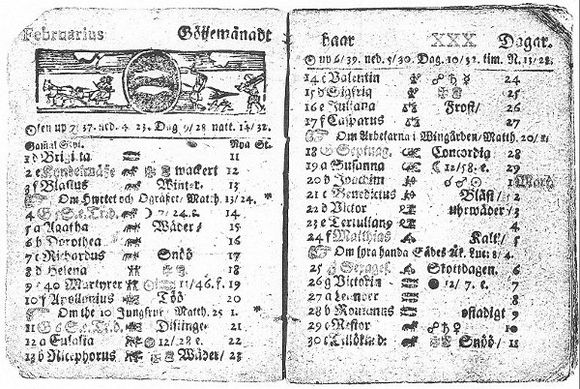 Februarius Göijemånadt
Solen up 7/37. ned. 4 23. Dag 9/28 natt. 14/32.
Gamal Styl. Nya St.
1 d Brigitta 11
2 e Kyndelmässe wackert 12
3 f Blasius Winter. 13
Om Hwetet och Ogräset/ Matth. 13/24.
4 G 7/24. e. 14
5 a Agatha Wäder/ 15
6 b Dorothea 16
7 c Richardus Snöö 17
8 d Helena 18
9 e 40 Martyrer 11/46. f. 19
10 f Apollonius Töö 20
Om the 10 Jungfrur/ Matth. 25 1.
11 G Distinge 21
12 a Eulalia 12/28 e. 22
13 b Nicephorus Wäder/ 23
haar XXX Dagar.
up 6/39. ned. 5/30. Dag. 10/32. tim. N. 13/28.
14 c Valentin 24
15 d Sigfrid 25
16 e Juliana Frost/ 26
17 f Casparus 27
Om Arbetarna i Wingården/ Matth. 20/1.
18 G Septuag. Concordia 28
19 a Susanna 12/58. e. 29
20 b Joachim 1 Mart.
21 c Benedictus Bläst/ 2
22 d Victor uhrwäder/ 3
23 e Tertulian 4
24 f Matthias Kalt/ 5
Om fyra handa Sädes åk. Luc: 8/4.
25 G Sexages. Skottdagen. 6
26 g Victorin 12/ 7. e. 7
27 a Leander 8
28 b Romanus ostadigt 9
29 c Nestor 10
30 c Snöö/ 11